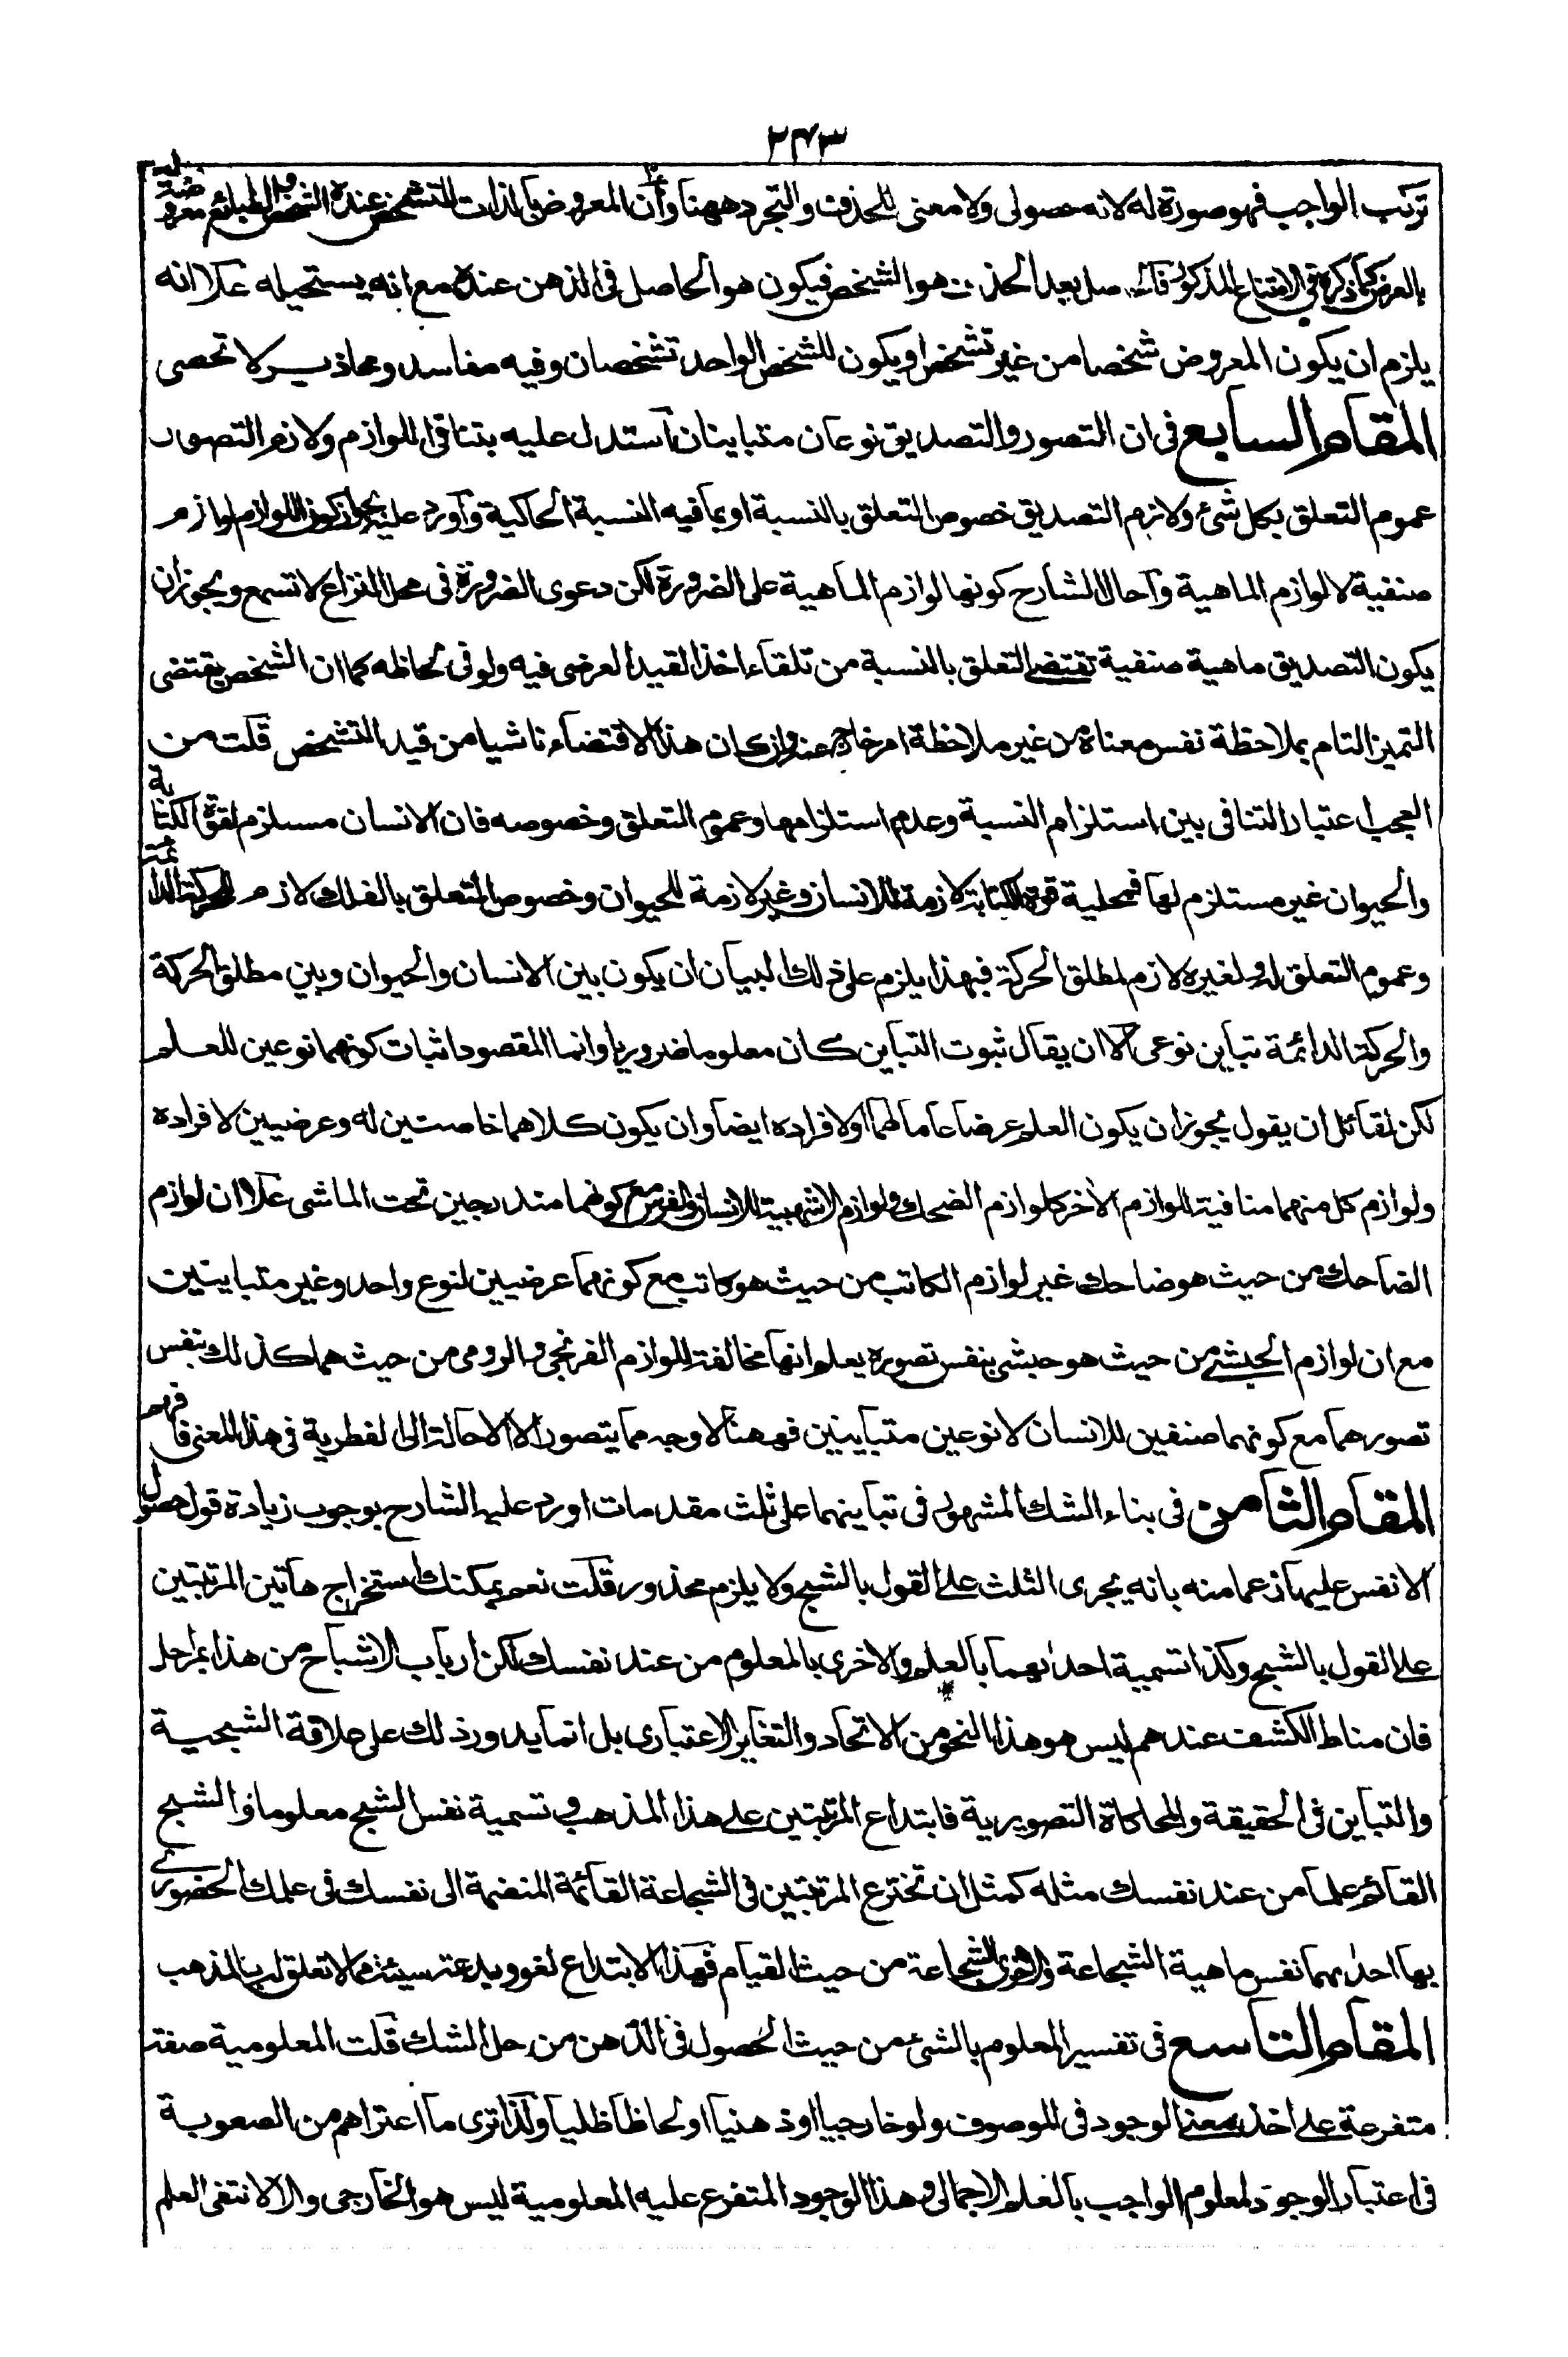 ٢٤٣
ترتب الواجب فهو صورة له لانه حصولى ولا معنى للحذف والتجرد ههنا وأن المعروض بالذات التشخص عنده الشخص والطبائع معروضية له
بالعرض كما ذكره فى الاقناع المذكور فالحاصل بعد الحذف هو الشخص فيكون هو الحاصل فى الذهن عنده مع انه يستحيله علا انه
يلزم ان يكون المعروض شخصا من غير تشخص او يكون للشخص الواحد تشخصان وفيه مفاسد ومحاذير لا تحصى
المقام السابع فى ان التصور والتصديق نوعان متباينان آستدل عليه بتنافى اللوازم ولازم التصور
عموم التعلق بكل شئ ولازم التصديق خصوص التعلق بالنسبة او بما فيه النسبة الحاكية وآورد عليه بجواز كون اللوازم لوازم
صنفية لا لوازم الماهية وآحال الشارح كونها لوازم الماهية على الضرورة لكن دعوى الضرورة فى محل النزاع لا تسمع ويجوز ان
يكون التصديق ماهية صنفية تقتضے التعلق بالنسبة من تلقاء اخذ القيد العرضى فيه ولو فى لحاظه كما ان الشخص يقتضى
التميز التام بملاحظة نفس معناه من غير ملاحظة امر خارج عنه وان كان هذا الاقتضاء ناشيا من قيد التشخص قلت من
العجب اعتبار التنافى بين استلزام النسبة وعدم استلزامها وعموم التعلق وخصوصه فان الانسان مستلزم لقوة الكتابة
والحيوان غير مستلزم لها فمحلية قوة الكتابة لازمة للانسان وغير لازمة للحيوان وخصوص التعلق بالفلك لازم للحركة الدائمة
وعموم التعلق له ولغيره لازم لمطلق الحركة فبهذا يلزم على ذلك البيان ان يكون بين الانسان والحيوان وبين مطلق الحركة
والحركة الدائمة تباين نوعى الا ان يقال ثبوت التباين كان معلوما ضروريا وانما المقصود اثبات كونهما نوعين للعلم
لكن لقائل ان يقول يجوز ان يكون العلم عرضا عاما لهما اولا فراده ايضا وان يكون كلاهما خاصتين له وعرضيين لافراده
ولوازم كل منهما منافية للوازم الأخر كلوازم الضحك ولوازم الاشهبية للانسان والفرس مع كونهما مندرجين تحت الماشى علا ان لوازم
الضاحك من حيث هو ضاحك غير لوازم الكاتب من حيث هو كاتب مع كونهما عرضيين لنوع واحد وغير متباينين
مع ان لوازم الحبشے من حيث هو حبشى بنفس تصوره يعلم انها مخالفة للوازم الفرنجى والرومى من حيث هما كذلك بنفس
تصورهما مع كونهما صنفين للانسان لا نوعين متباينين فههنا لا وجه مما يتصور الا الاحالة الى الفطرية فى هذا المعنى فافهم
المقام الثامن فى بناء الشك المشهور فى تباينهما على ثلث مقدمات اورد عليه الشارح بوجوب زيادة قول حصول
الانفس عليها زعما منه بانه يجرى الثلث علے القول بالشبح ولا يلزم محذور قلت نعم يمكنك استخراج هآتين المرتبتين
علے القول بالشبح وكذا تسمية احدىهما بالعلم والاخرى بالمعلوم من عند نفسك لكن ارباب الاشباح من هذا بمراحل
فان مناط الكشف عندهم ليس هو هذا النحو من الاتحاد والتغاير الاعتبارى بل انما يدور ذلك على علاقة الشبحية
والتباين فى الحقيقة والمحاكاة التصويرية فابتداع المرتبتين علے هذا المذهب و تسمية نفس الشبح معلوما والشبح
القائم علما من عند نفسك مثله كمثل ان تخترع المرتبتين فى الشجاعة القائمة المنضمة الى نفسك فى علمك الحضورى
بها احدىهما نفس ماهية الشجاعة والاخرى الشجاعة من حيث القيام فهذا الابتداع لغو وبدعة سيئة مما لا تعلق له بالمذهب
المقام التاسع فى تفسير المعلوم بالشئ من حيث الحصول فى الذهن من حل الشك قلت المعلومية صفة
متفرعة علے اخذ بمعنے الوجود فى الموصوف ولو خارجيا او ذهنيا او لحاظا ظليا ولذا ترى ما اعتراهم من الصعوبة
فى اعتبار الوجود لمعلوم الواجب بالعلم الاجمالى وهذا الوجود المتفرع عليه المعلومية ليس هو الخارجى والا لانتفى العلم